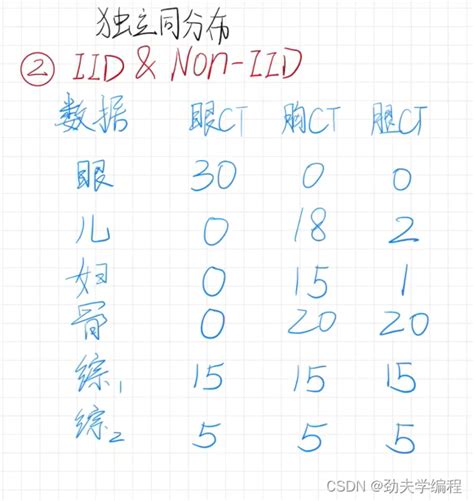 独立同分布
② IID & Non-IID
数据 眼CT 胸CT 腿CT
眼 30 0 0
儿 0 18 2
妇 0 15 1
骨 0 20 20
综1 15 15 15
综2 5 5 5
CSDN @劲夫学编程